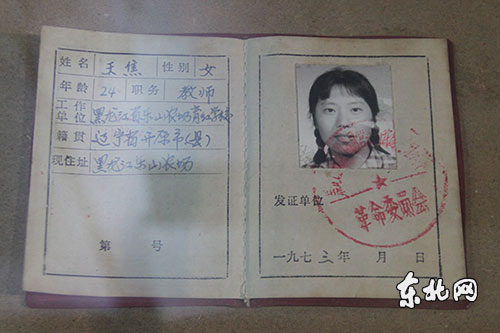 姓名 王焦 性别 女
年龄 24 职务 教师
工作单位 黑龙江省乐山农场育红学校
籍贯 辽宁省开原市(县)
现住址 黑龙江乐山农场
第 号
发证单位
革命委员会
一九七三年 月 日
东北网